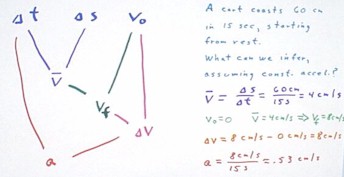 Δt Δs v₀
v̄
v_f
Δv
a
A cart coasts 60 cm
in 15 sec, starting
from rest.
What can we infer,
assuming const. accel.?
v̄ = Δs/Δt = 60cm/15s = 4 cm/s
v₀=0 v̄ = 4cm/s ⇒ v_f = 8cm/s
Δv = 8 cm/s - 0 cm/s = 8cm/s
a = 8cm/s/15s = .53 cm/s